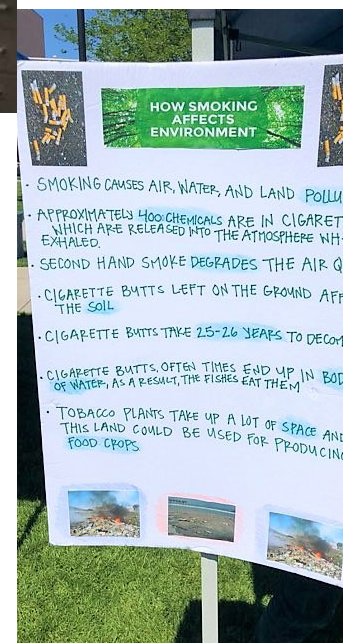 HOW SMOKING
AFFECTS
ENVIRONMENT
• SMOKING CAUSES AIR, WATER, AND LAND POLLU
• APPROXIMATELY 400 CHEMICALS ARE IN CIGARET
WHICH ARE RELEASED INTO THE ATMOSPHERE WH
EXHALED.
• SECOND HAND SMOKE DEGRADES THE AIR Q
• CIGARETTE BUTTS LEFT ON THE GROUND AFF
THE SOIL
• CIGARETTE BUTTS TAKE 25-26 YEARS TO DECOM
• CIGARETTE BUTTS, OFTEN TIMES END UP IN BOD
OF WATER, AS A RESULT, THE FISHES EAT THEM
• TOBACCO PLANTS TAKE UP A LOT OF SPACE AND
THIS LAND COULD BE USED FOR PRODUCING
FOOD CROPS